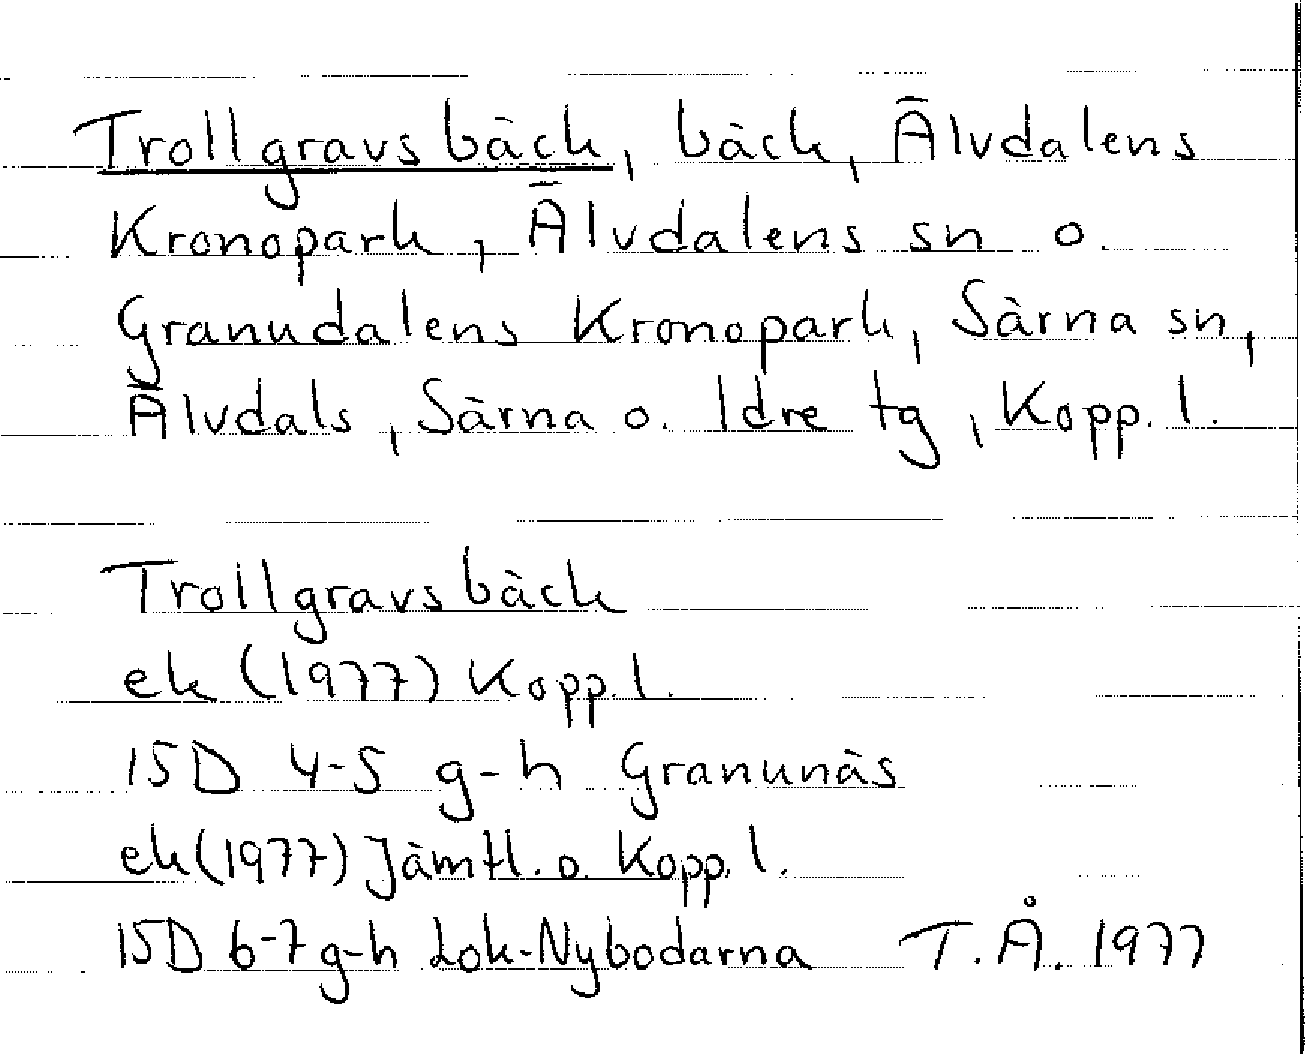 Trollgravsbäck, bäck, Älvdalens
Kronopark, Älvdalens sn o.
Granudalens Kronopark, Särna sn,
Älvdals, Särna o. Idre tg, Kopp. l.
Trollgravsbäck
ek (1977) Kopp. l.
15D 4-5 g-h Granunäs
ek (1977) Jämtl. o. Kopp. l.
15D 6-7 g-h Lok-Nybodarna T.Å. 1977